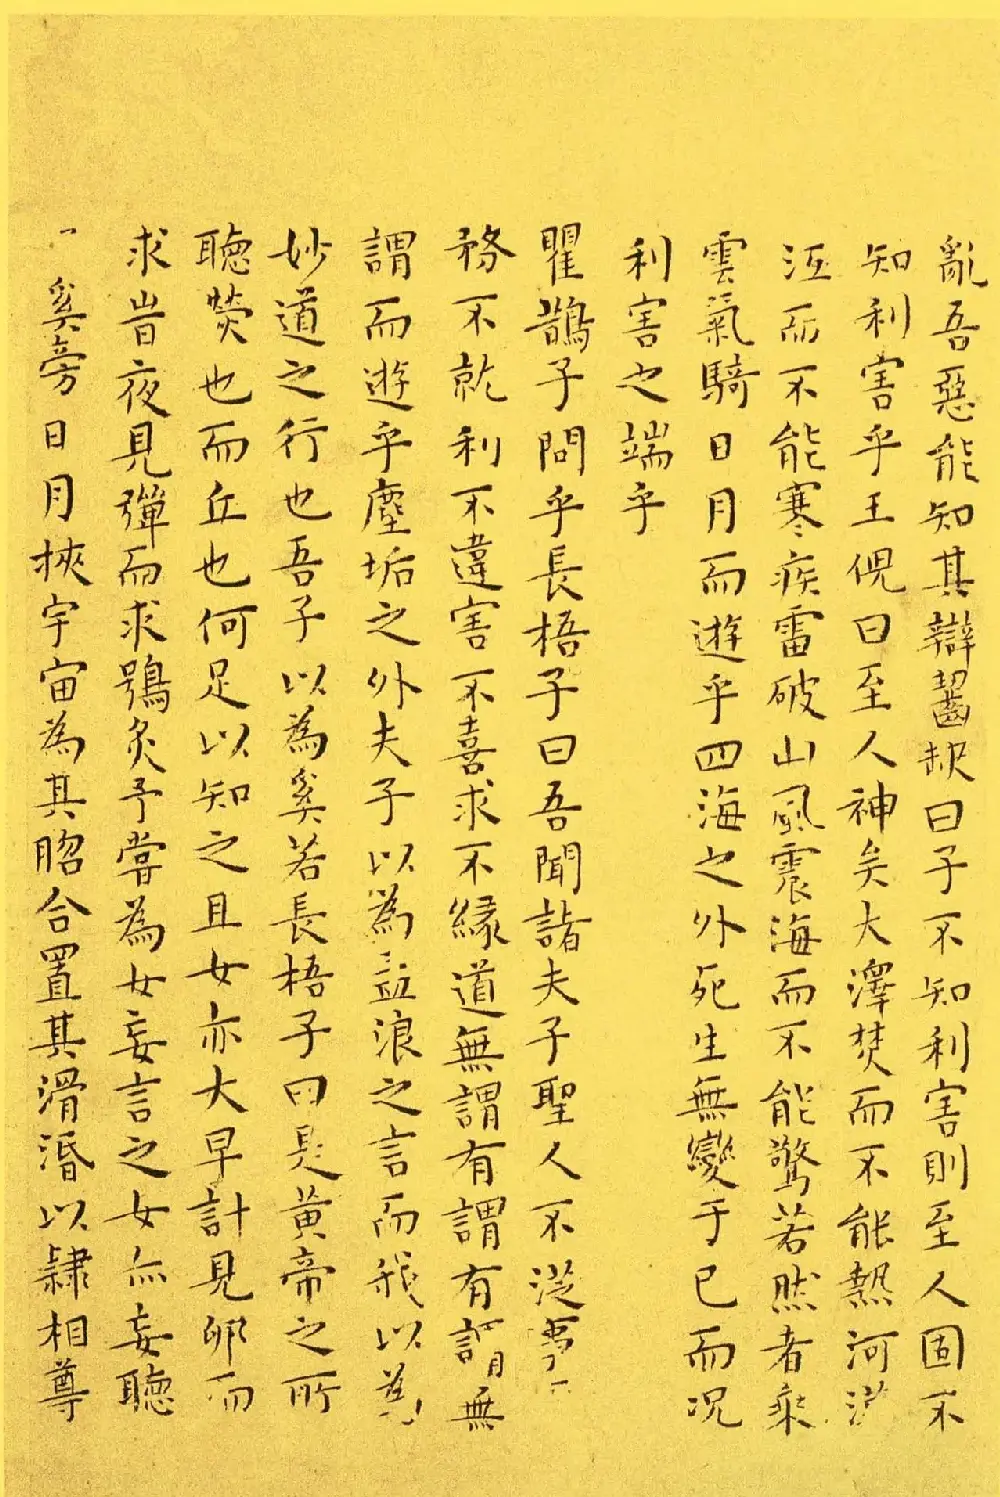 亂吾惡能知其辯齧缺曰子不知利害則至人固不
知利害乎王倪曰至人神矣大澤焚而不能熱河漢
沍而不能寒疾雷破山風震海而不能驚若然者乘
雲氣騎日月而遊乎四海之外死生無變于已而況
利害之端乎
瞿鵲子問乎長梧子曰吾聞諸夫子聖人不從事
務不就利不違害不喜求不緣道無謂有謂有謂無
謂而遊乎塵垢之外夫子以為孟浪之言而我以為
妙道之行也吾子以為奚若長梧子曰是黃帝之所
聽熒也而丘也何足以知之且女亦大早計見卵而
求旹夜見彈而求鴞炙予嘗為女妄言之女亦妄聽
奚旁日月挾宇宙為其脗合置其滑涽以隸相尊